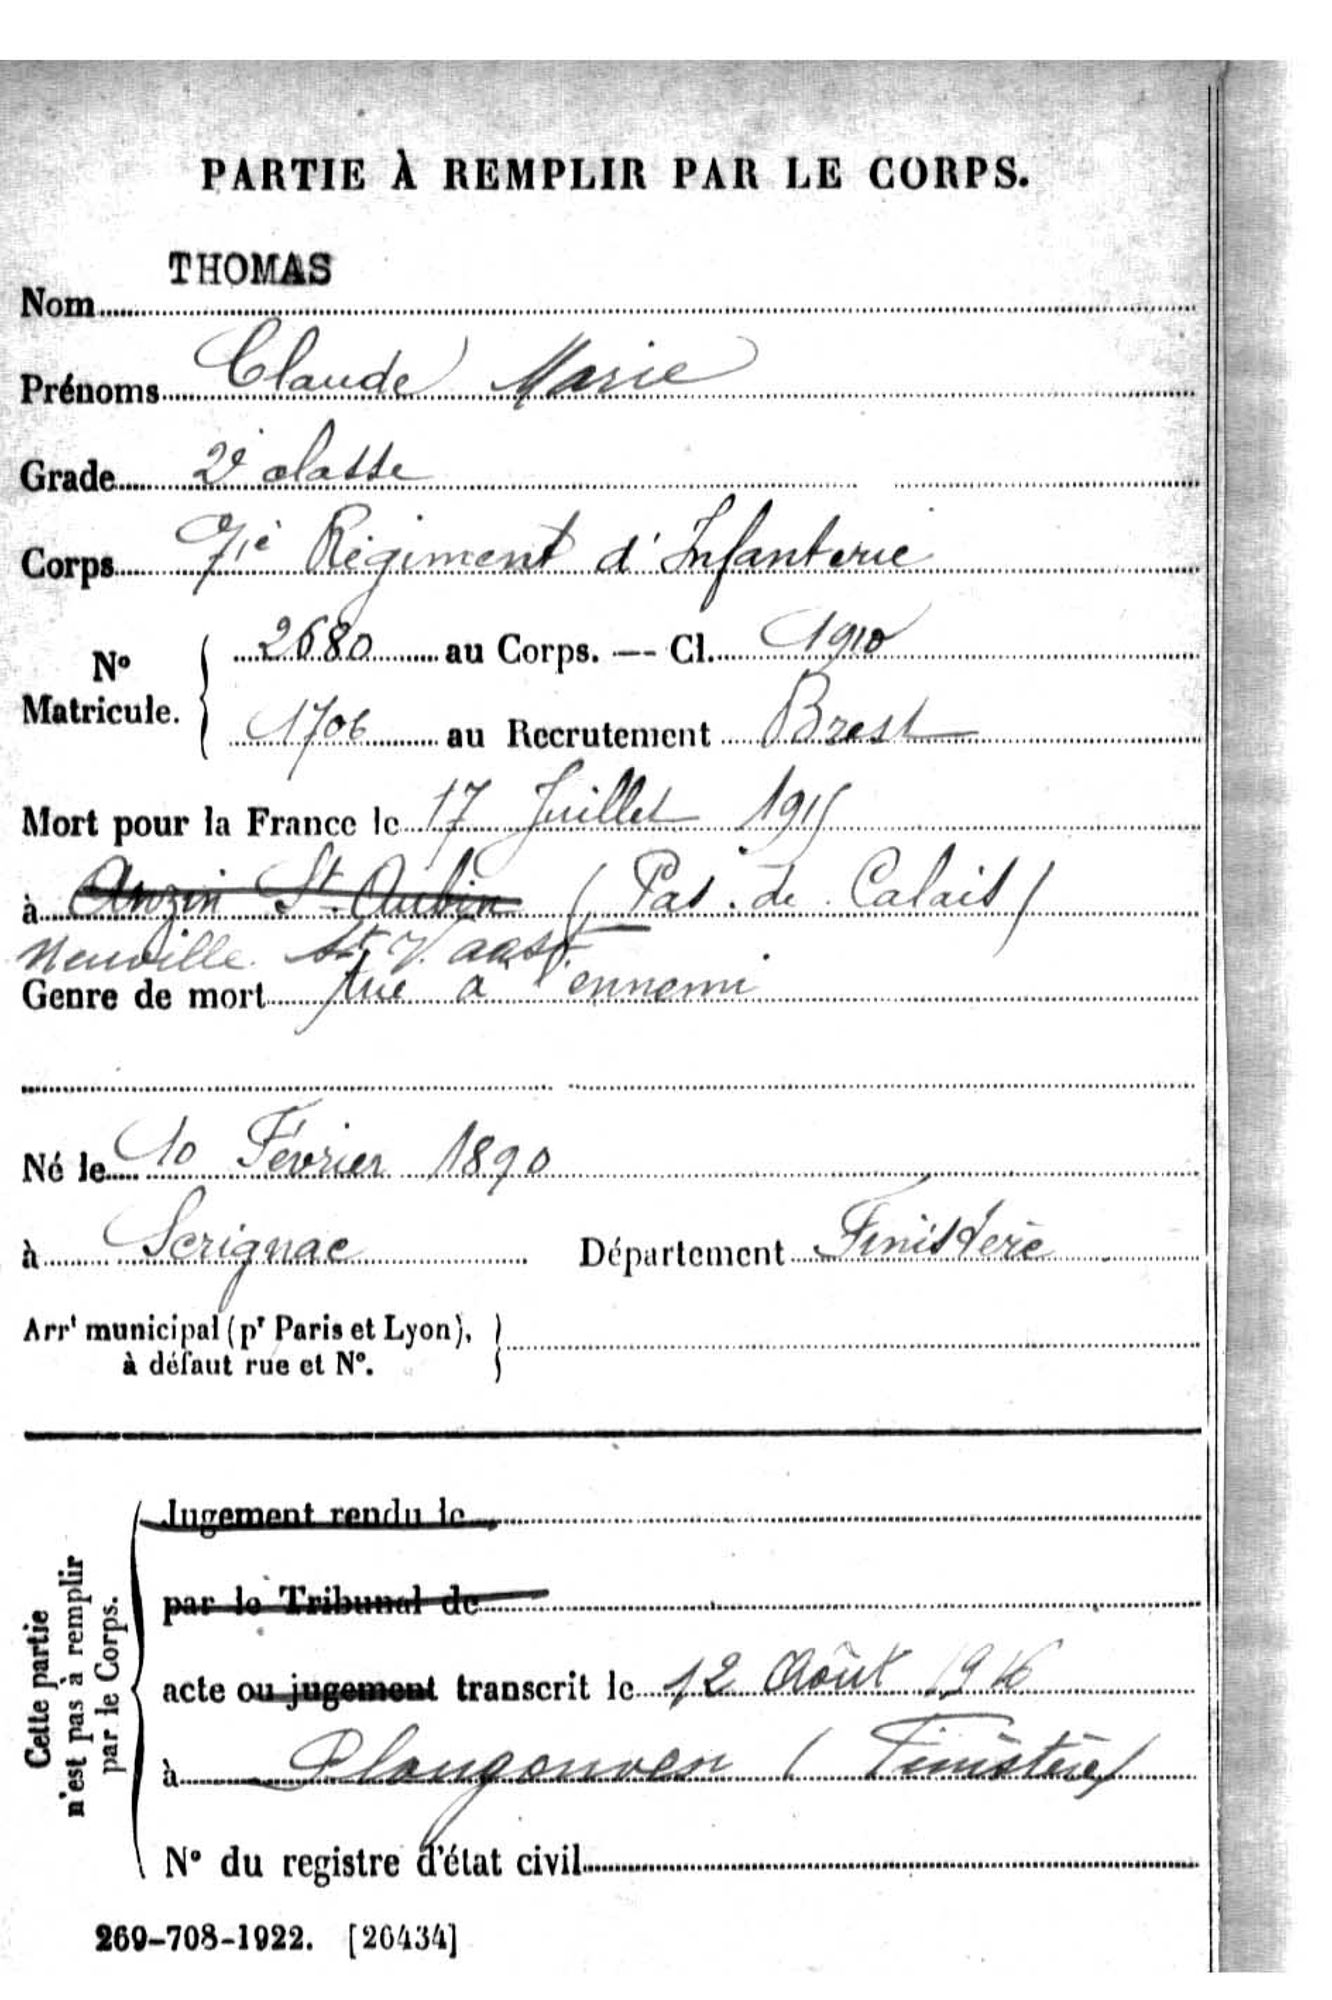 PARTIE À REMPLIR PAR LE CORPS.
THOMAS
Nom
Prénoms Claude Marie
Grade 2è classe
Corps 71è Régiment d'Infanterie
N° Matricule. { 2680 au Corps. — Cl. 1910
1706 au Recrutement Brest
Mort pour la France le 17 Juillet 1915
à Anzin St. Aubin (Pas. de Calais)
Neuville St Vaast.
Genre de mort tué à l'ennemi
Né le 10 Février 1890
à Scrignac Département Finistère
Arrt municipal (pr Paris et Lyon), }
à défaut rue et N°.
Cette partie
n'est pas à remplir
par le Corps.
Jugement rendu le
par le Tribunal de
acte ou jugement transcrit le 12 Août 1916
à Plougonven (Finistère)
N° du registre d'état civil
269-708-1922. [26434]